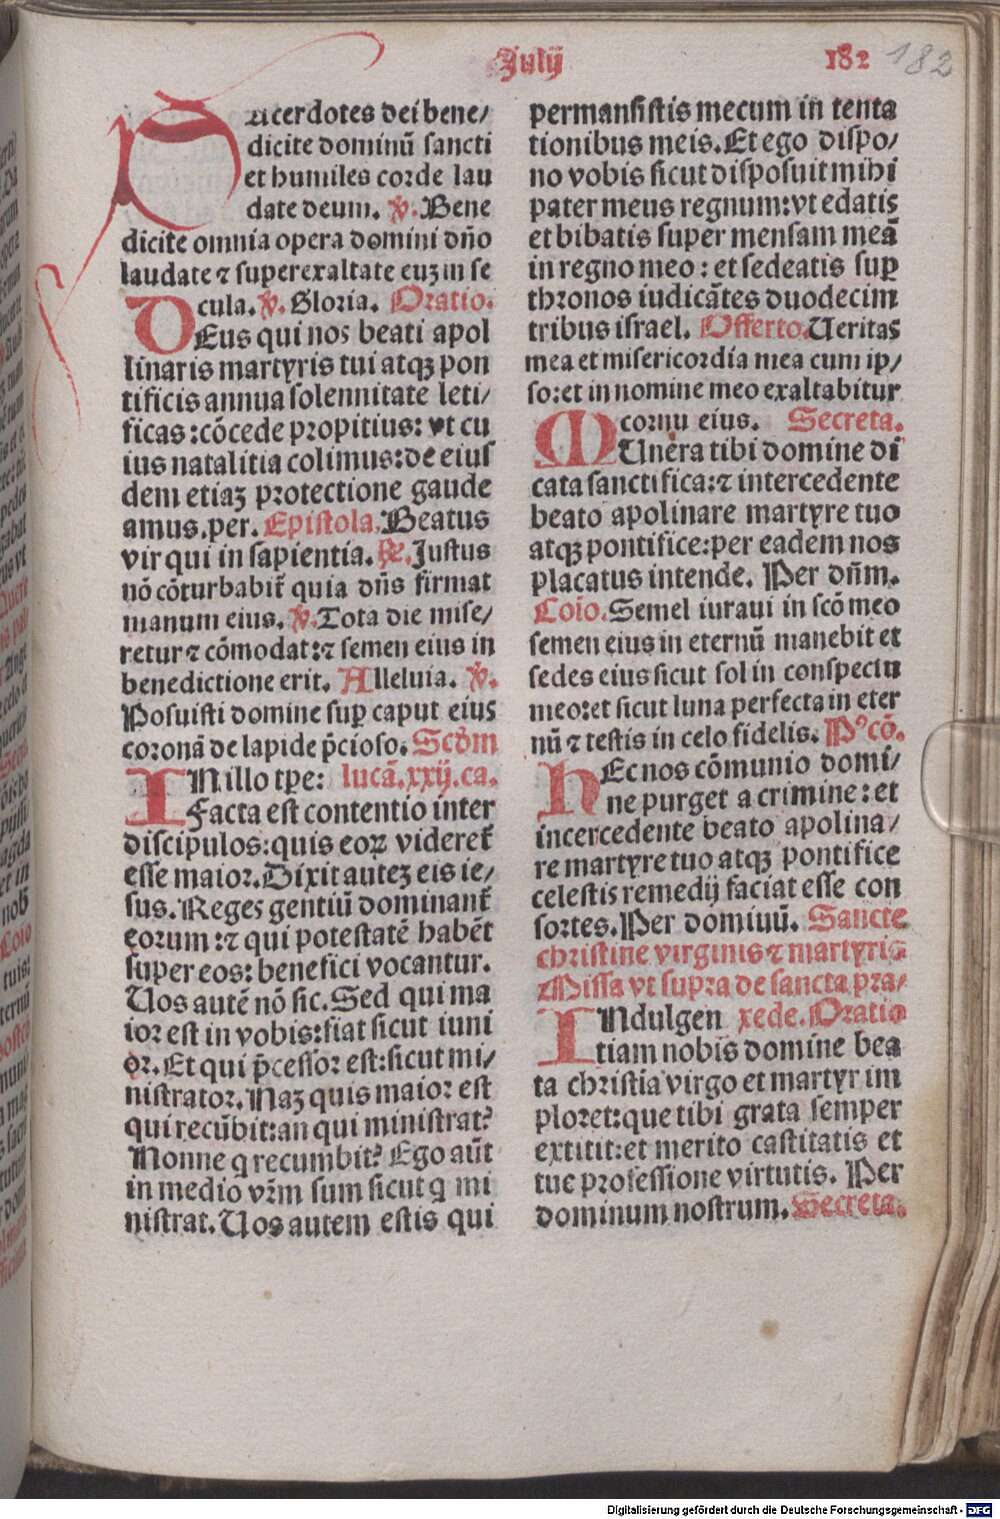 Julij
182
182
Sacerdotes dei bene/
dicite dominū sancti
et humiles corde lau
date deum. ℣. Bene
dicite omnia opera domini dño
laudate ⁊ superexaltate euꝫ in se
cula. ℣. Gloria. Oratio.
DEus qui nos beati apol
linaris martyris tui atqꝫ pon
tificis annua solennitate leti/
ficas: cōcede propitius: vt cu
ius natalitia colimus: de eius
dem etiaꝫ protectione gaude
amus. per. Epistola. Beatus
vir qui in sapientia. ℟. Justus
nō cōturbabit̄ quia dñs firmat
manum eius. ℣. Tota die mise/
retur ⁊ cōmodat: ⁊ semen eius in
benedictione erit. Alleluia. ℣.
Posuisti domine suꝑ caput eius
coronā de lapide p̄cioso. Scd̄m
IN illo tꝑe: lucā. xxij. ca.
Facta est contentio inter
discipulos: quis eoꝝ videret̄
esse maior. Dixit auteꝫ eis ie/
sus. Reges gentiū dominant̄
eorum: ⁊ qui potestatē habēt
super eos: benefici vocantur.
Uos autē nō sic. Sed qui ma
ior est in vobis: fiat sicut iuni
or. Et qui p̄cessor est: sicut mi/
nistrator. Naꝫ quis maior est
qui recūbit: an qui ministrat?
Nonne q recumbit? Ego aūt
in medio vr̄m sum sicut q mi
nistrat. Uos autem estis qui
permansistis mecum in tenta
tionibus meis. Et ego dispo/
no vobis sicut disposuit mihi
pater meus regnum: vt edatis
et bibatis super mensam meā
in regno meo: et sedeatis suꝑ
thronos iudicātes duodecim
tribus israel. Offerto. Ueritas
mea et misericordia mea cum ip/
so: et in nomine meo exaltabitur
cornu eius. Secreta.
MUnera tibi domine di
cata sanctifica: ⁊ intercedente
beato apolinare martyre tuo
atqꝫ pontifice: per eadem nos
placatus intende. Per dñm.
Coīo. Semel iuraui in scō meo
semen eius in eternū manebit et
sedes eius sicut sol in conspectu
meo: et sicut luna perfecta in eter
nū ⁊ testis in celo fidelis. Pꝰcō.
HEc nos cōmunio domi/
ne purget a crimine: et
incercedente beato apolina/
re martyre tuo atqꝫ pontifice
celestis remedij faciat esse con
sortes. Per dominū. Sancte
christine virginis ⁊ martyris
Missa vt supra de sancta pra/
INdulgen xede. Oratio
tiam nobis domine bea
ta christia virgo et martyr im
ploret: que tibi grata semper
extitit: et merito castitatis et
tue professione virtutis. Per
dominum nostrum. Secreta.
Digitalisierung gefördert durch die Deutsche Forschungsgemeinschaft - DFG